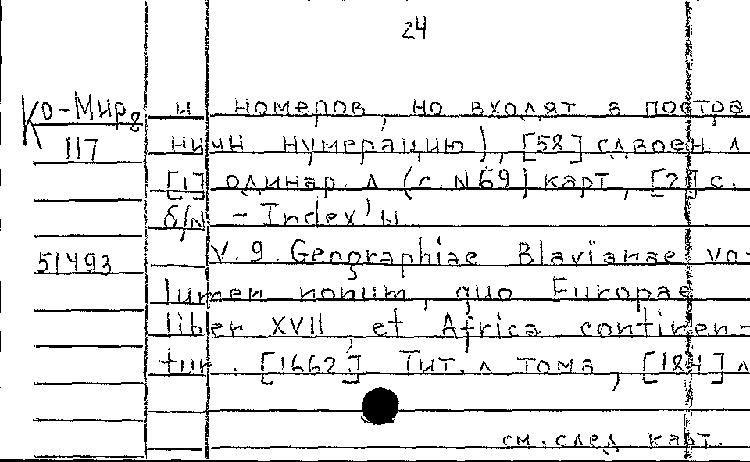 24
Ко-Мир 8
117
51493
и номеров, но входят в постра
ничн. нумерацию), [58] сдвоен. л
[1] одинар. л (с N 69) карт, [2] с.
б/н - Index'ы
V. 9. Geographiae Blavianae vo-
lumen nonum, quo Europae
liber XVII, et Africa continen-
tur. [1662] Тит. л тома, [184] л
см. след карт.